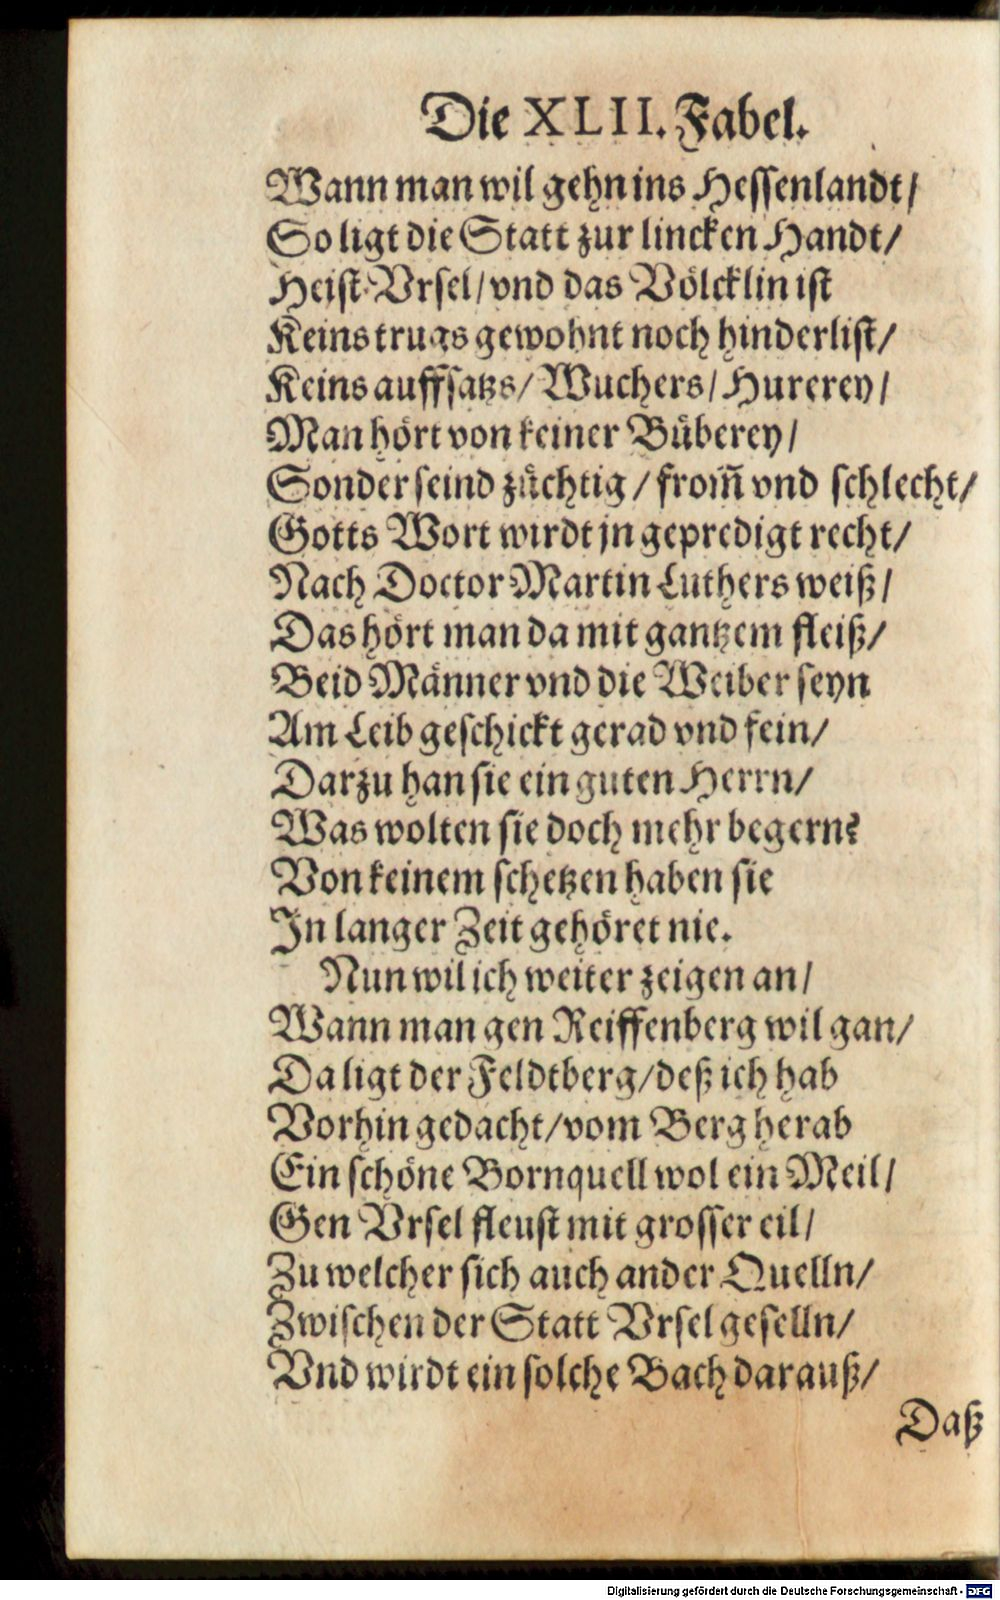 Die XLII. Fabel.
Wann man wil gehn ins Hessenlandt/
So ligt die Statt zur lincken Handt/
Heist Vrsel/ vnd das Völcklin ist
Keins trugs gewohnt noch hinderlist/
Keins auffsatzs/ Wuchers/ Hurerey/
Man hört von keiner Büberey/
Sonder seind züchtig/ from̃ vnd schlecht/
Gotts Wort wirdt jn gepredigt recht/
Nach Doctor Martin Luthers weiß/
Das hört man da mit gantzem fleiß/
Beid Männer vnd die Weiber seyn
Am Leib geschickt gerad vnd fein/
Darzu han sie ein guten Herrn/
Was wolten sie doch mehr begern?
Von keinem schetzen haben sie
In langer Zeit gehöret nie.
Nun wil ich weiter zeigen an/
Wann man gen Reiffenberg wil gan/
Da ligt der Feldtberg/ deß ich hab
Vorhin gedacht/ vom Berg herab
Ein schöne Bornquell wol ein Meil/
Gen Vrsel fleust mit grosser eil/
Zu welcher sich auch ander Quelln/
Zwischen der Statt Vrsel geselln/
Vnd wirdt ein solche Bach darauß/
Daß
Digitalisierung gefördert durch die Deutsche Forschungsgemeinschaft - DFG